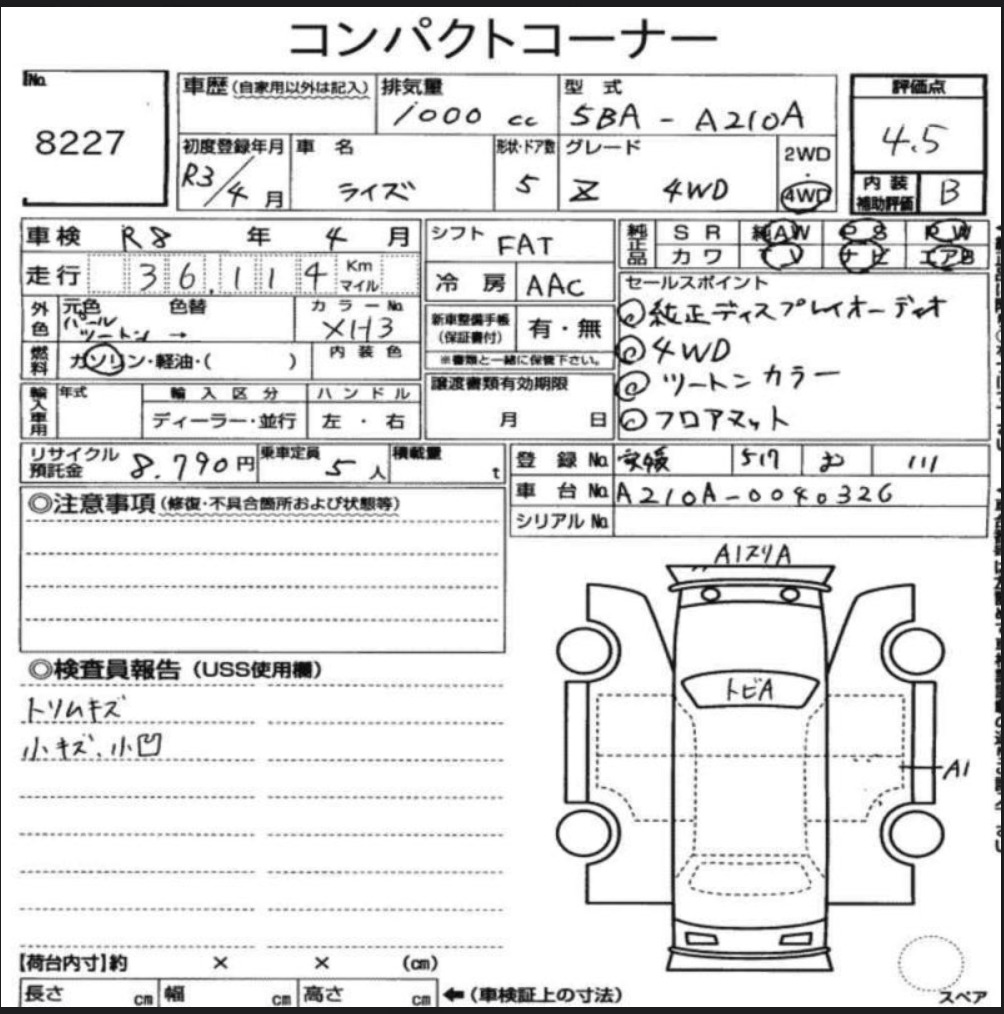 コンパクトコーナー
No.
8227
車歴 (自家用以外は記入)
排気量
1000 cc
型式
5BA - A210A
評価点
4.5
内装補助評価 B
初度登録年月
R3/4 月
車名
ライズ
形状・ドア数
5
グレード
Z 4WD
2WD
・
4WD
車検 R8 年 4 月
走行 36,114 Km マイル
外色 元色 色替
パール
ツートン →
カラーNo.
XH3
燃料 ガソリン・軽油・( )
内装色
輸入車用 年式
輸入区分
ディーラー・並行
ハンドル
左 ・ 右
シフト FAT
冷房 AAC
新車整備手帳
(保証書付)
有・無
※書類と一緒に保管下さい。
譲渡書類有効期限
月 日
純正品 SR 純AW PS PW
カワ TV ナビ エアB
セールスポイント
◎純正ディスプレイオーディオ
◎4WD
◎ツートンカラー
◎フロアマット
リサイクル預託金 8,790円
乗車定員 5 人
積載量 t
登録No. 愛媛 517 お 111
車台No. A210A-0040326
シリアルNo.
◎注意事項 (修復・不具合箇所および状態等)
◎検査員報告 (USS使用欄)
トリムキズ
小キズ、小凹
A1スリA
トビA
A1
【荷台内寸】約 × × (cm)
長さ cm 幅 cm 高さ cm ←(車検証上の寸法)
スペア